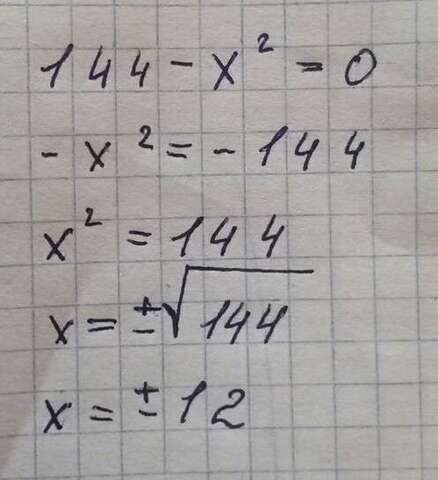 144 - x² = 0
- x² = - 144
x² = 144
x = ±√144
x = ±12